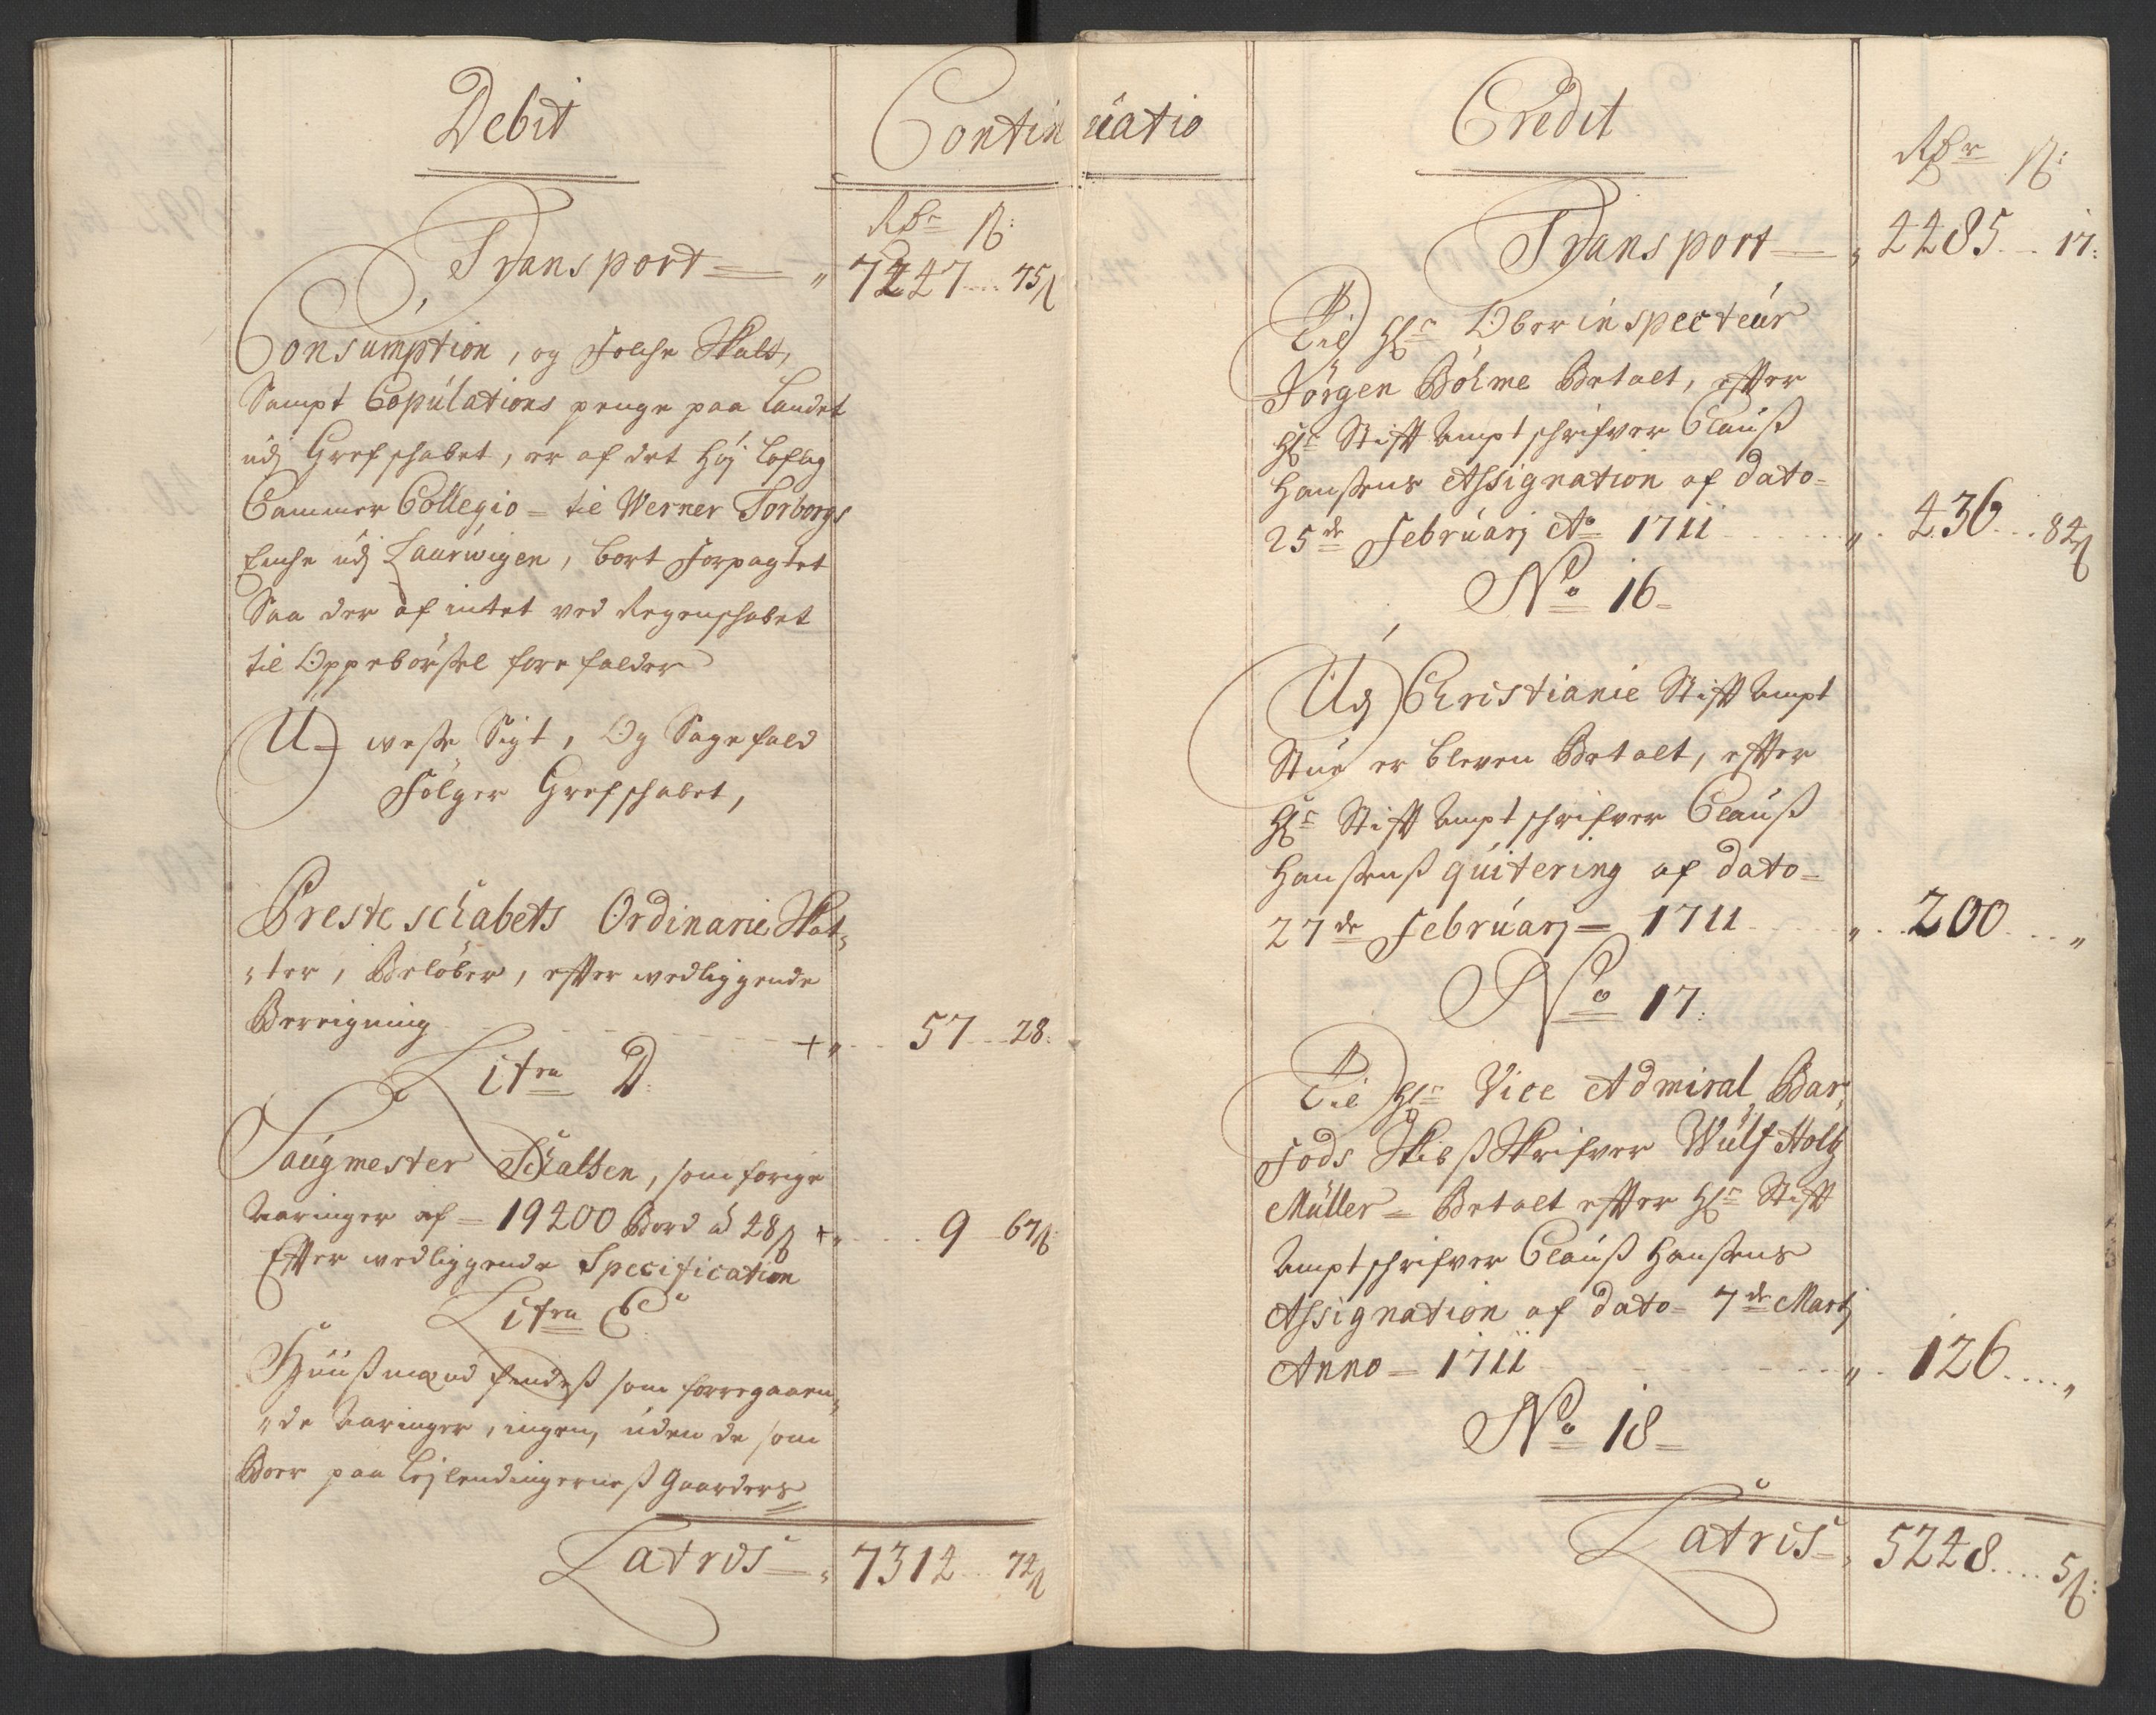 Debit
Continuatio
Rdr ß:
Transport „ 7247 75ß
Consumption, og Folche Skatt,
Sampt Copulations penge paa Landet
udj Grefschabet, er af det Høj Loflig
Cammer Collegio = til Werner Torborgs
Enche udj Laurwigen, bort Forpagtet
Saa der af intet ved Regenschabet
til Oppebørßel forefalder
U= weße Sigt, Og Sagefald
Følger Grefschabet,
Presteschabets Ordinarie Skat-
„ter, Beløber, efter wedliggende
Bereigning + „ 57 28:
Litra D:
Saugmester Schatten, som forige
Aaringer af = 19200 Bord a 48ß + „ 9 67ß:
Efter wedliggende Specification
Litra E:
Huußmænd findeß som forregaaen„
„de Aaringer, ingen, uden de som
Boer paa Lejlendingerneß Gaarder
Latris = „ 7314 74ß
Credit
Rdr ß:
Transport „ 4485 17:
Til Hr Oberinspecteur
Jørgen Bøhme Betalt, efter
Hr Stifft Ampt schrifver Clauß
Hanßens Assignation af dato=
25de Februarj Ao 1711 „ 436 84ß
No 16=
Udj Christianie Stifft Ampt
Stue er bleven Betalt, efter
Hr Stifft Ampt schrifver Clauß
Hanßenß quitering af dato=
27de Februarj = 1711 „ 200 „
No 17:
Til Hr Vice Admiral Bar„
Fods Skibß Skrifver Wulf Holtz
Müller = Betalt efter Hr Stifft
Amptschrifver Clauß Hanßens
Assignation af dato = 7de Martj
Anno = 1711 „ 126 „
No 18=
Latris = „ 5248 5ß: